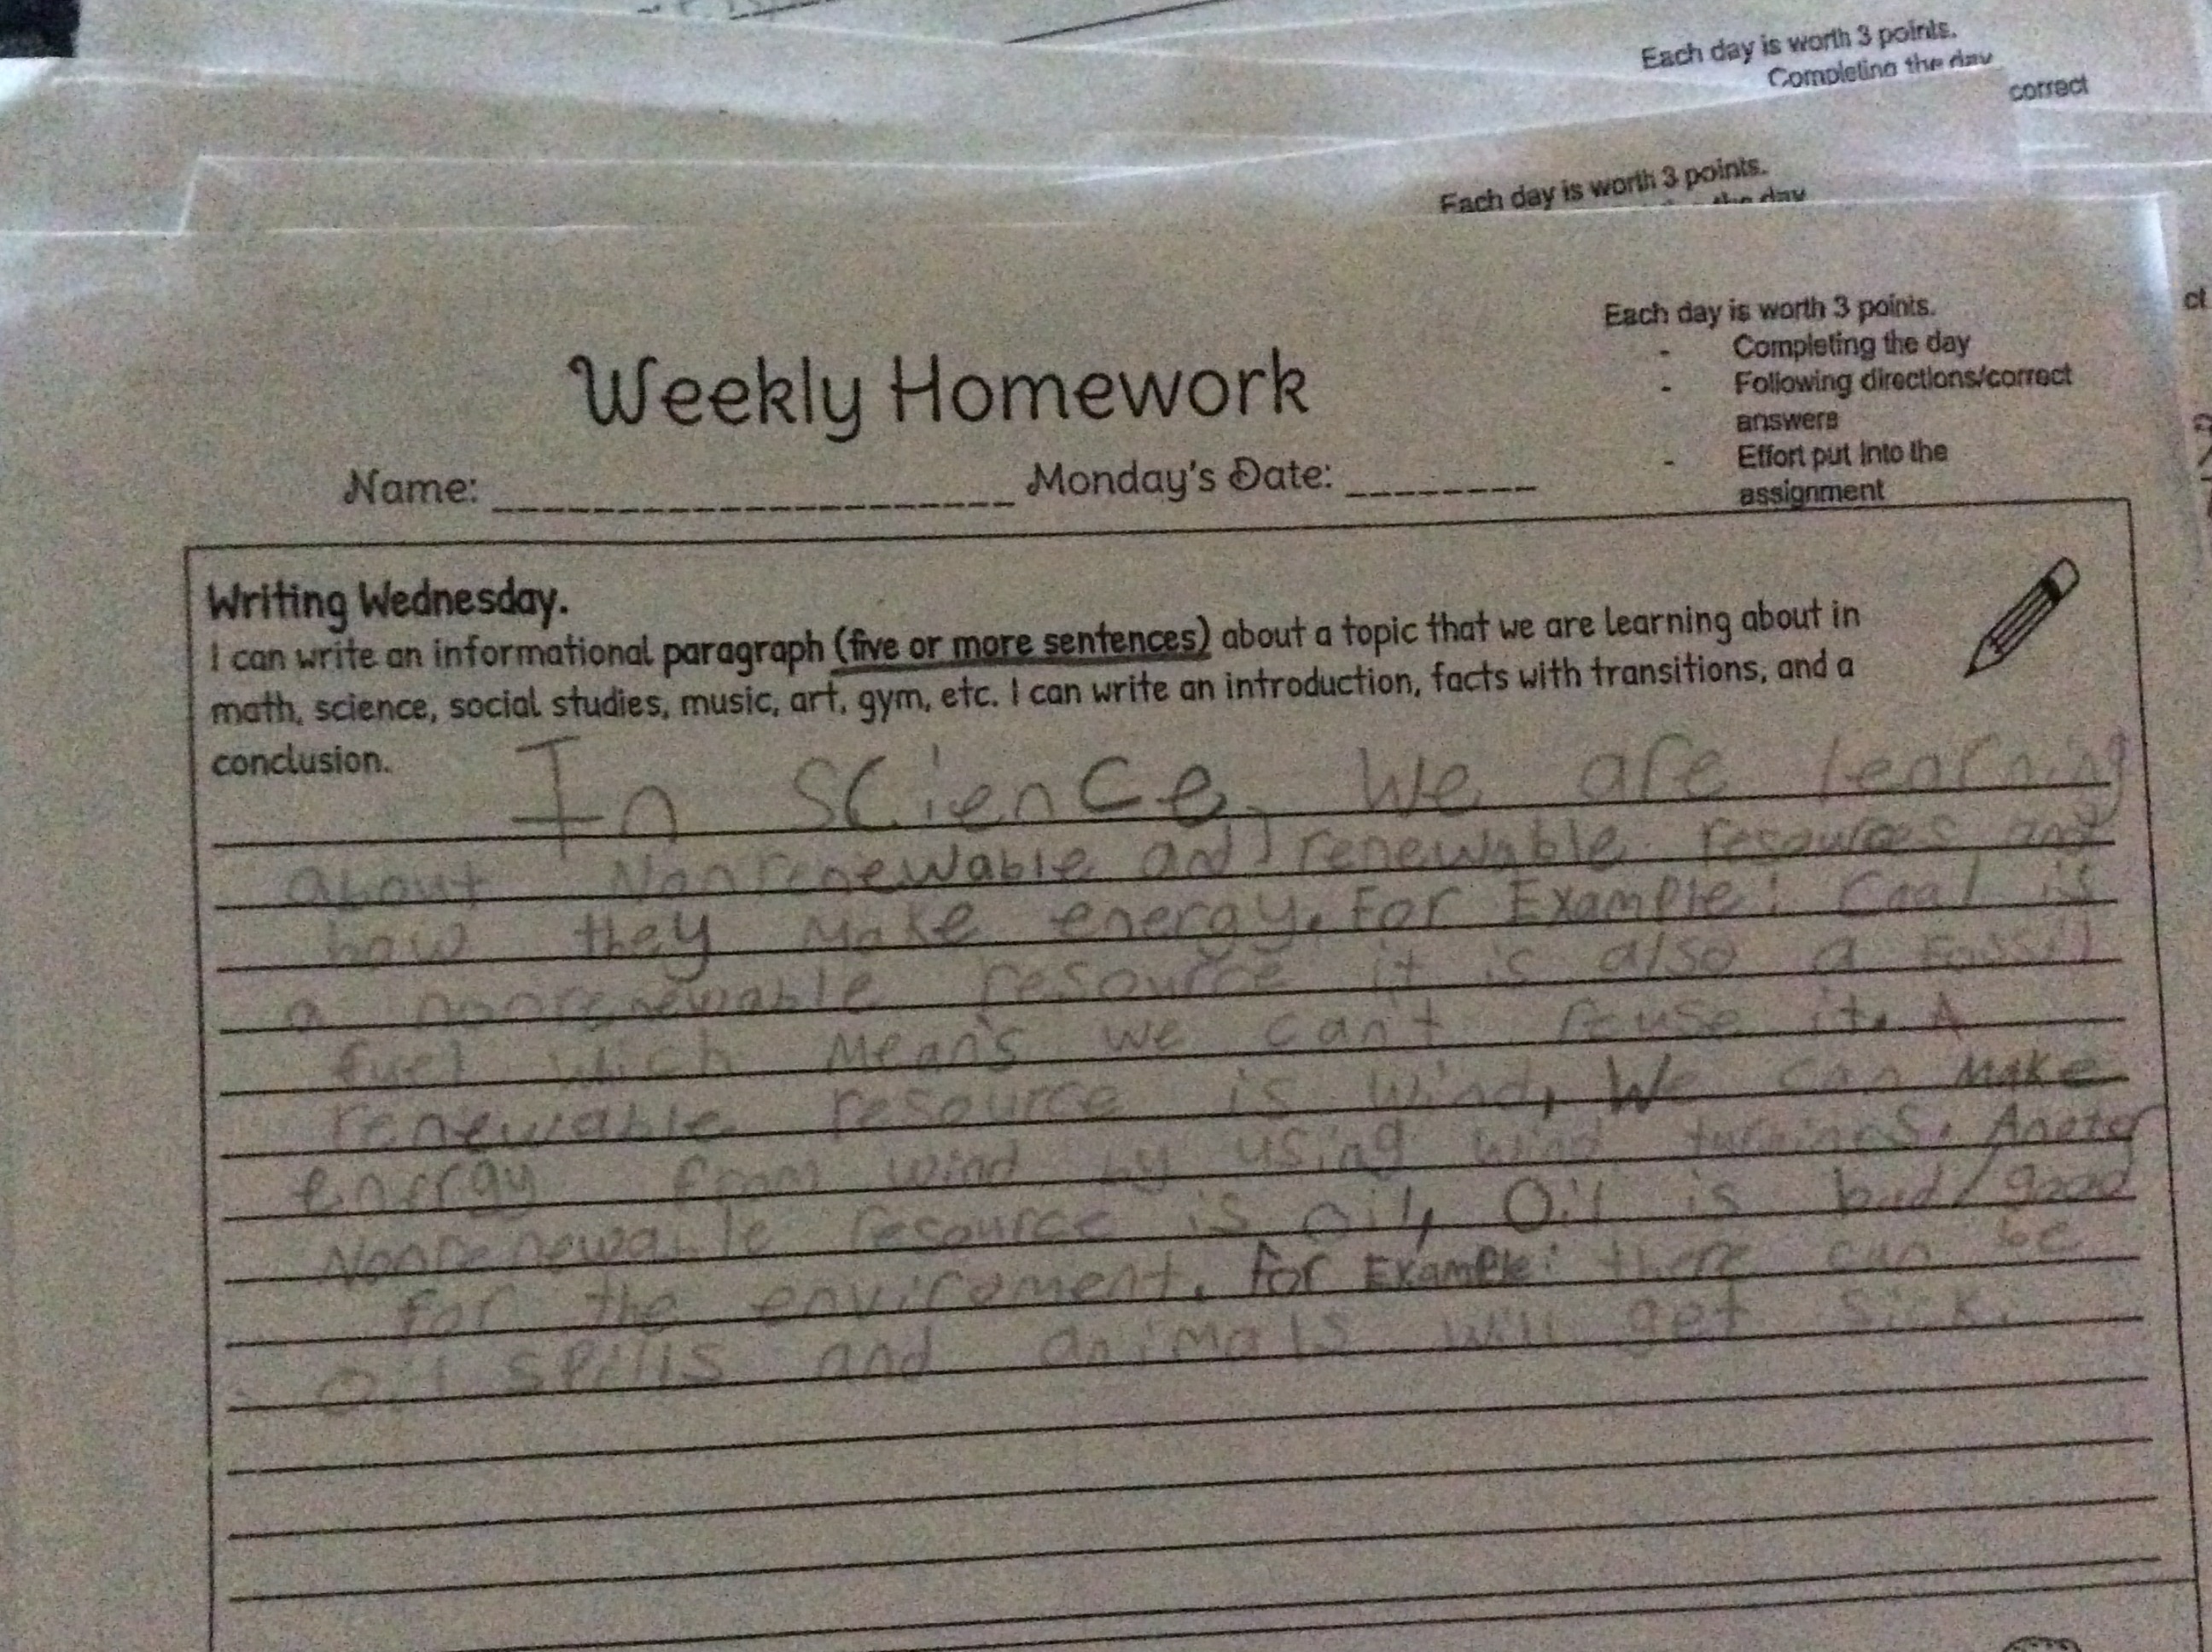 Each day is worth 3 points.
Completing the day
correct
Each day is worth 3 points.
the day
Each day is worth 3 points.
- Completing the day
- Following directions/correct
answers
- Effort put into the
assignment
ct
Weekly Homework
Name: Monday's Date:
Writing Wednesday.
I can write an informational paragraph (five or more sentences) about a topic that we are learning about in
math, science, social studies, music, art, gym, etc. I can write an introduction, facts with transitions, and a
conclusion.
In science, we are learning
about Nonrenewable and renewable resources and
how they make energy. For Example: Coal is
a nonrenewable resource it is also a Fossil
fuel which means we can't reuse it. A
renewable resource is wind, We can make
energy from wind by using wind turnines. Anoter
Nonrenewable resource is oil, Oil is bad/good
for the enviroment. For Example: there can be
oil spills and animals will get sick.